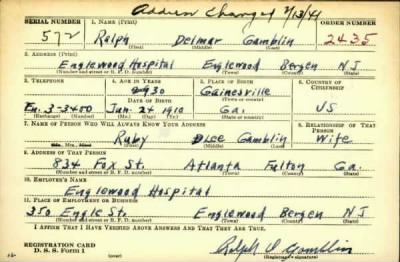 Address Changed 7/13/41
SERIAL NUMBER 1. NAME (Print) ORDER NUMBER
572 Ralph Delmar Gamblin 2435
(First) (Middle) (Last)
2. ADDRESS (Print)
Englewood Hospital Englewood Bergen N J
(Number and street or R. F. D. number) (Town) (County) (State)
3. TELEPHONE 4. AGE IN YEARS 5. PLACE OF BIRTH 6. COUNTRY OF CITIZENSHIP
30 Gainesville
DATE OF BIRTH (Town or county)
En. 3-3400 Jan. 24 1910 Ga. US
(Exchange) (Number) (Mo.) (Day) (Yr.) (State or country)
7. NAME OF PERSON WHO WILL ALWAYS KNOW YOUR ADDRESS 8. RELATIONSHIP OF THAT PERSON
Ruby Dlee Gamblin Wife
(Mr., Mrs., Miss) (First) (Middle) (Last)
9. ADDRESS OF THAT PERSON
834 Fox St. Atlanta Fulton Ga.
(Number and street or R. F. D. number) (Town) (County) (State)
10. EMPLOYER'S NAME
Englewood Hospital
11. PLACE OF EMPLOYMENT OR BUSINESS
350 Engle St. Englewood Bergen N J
(Number and street or R. F. D. number) (Town) (County) (State)
I AFFIRM THAT I HAVE VERIFIED ABOVE ANSWERS AND THAT THEY ARE TRUE.
REGISTRATION CARD
D. S. S. Form 1 (over) Ralph D. Gamblin
(Registrant's signature)